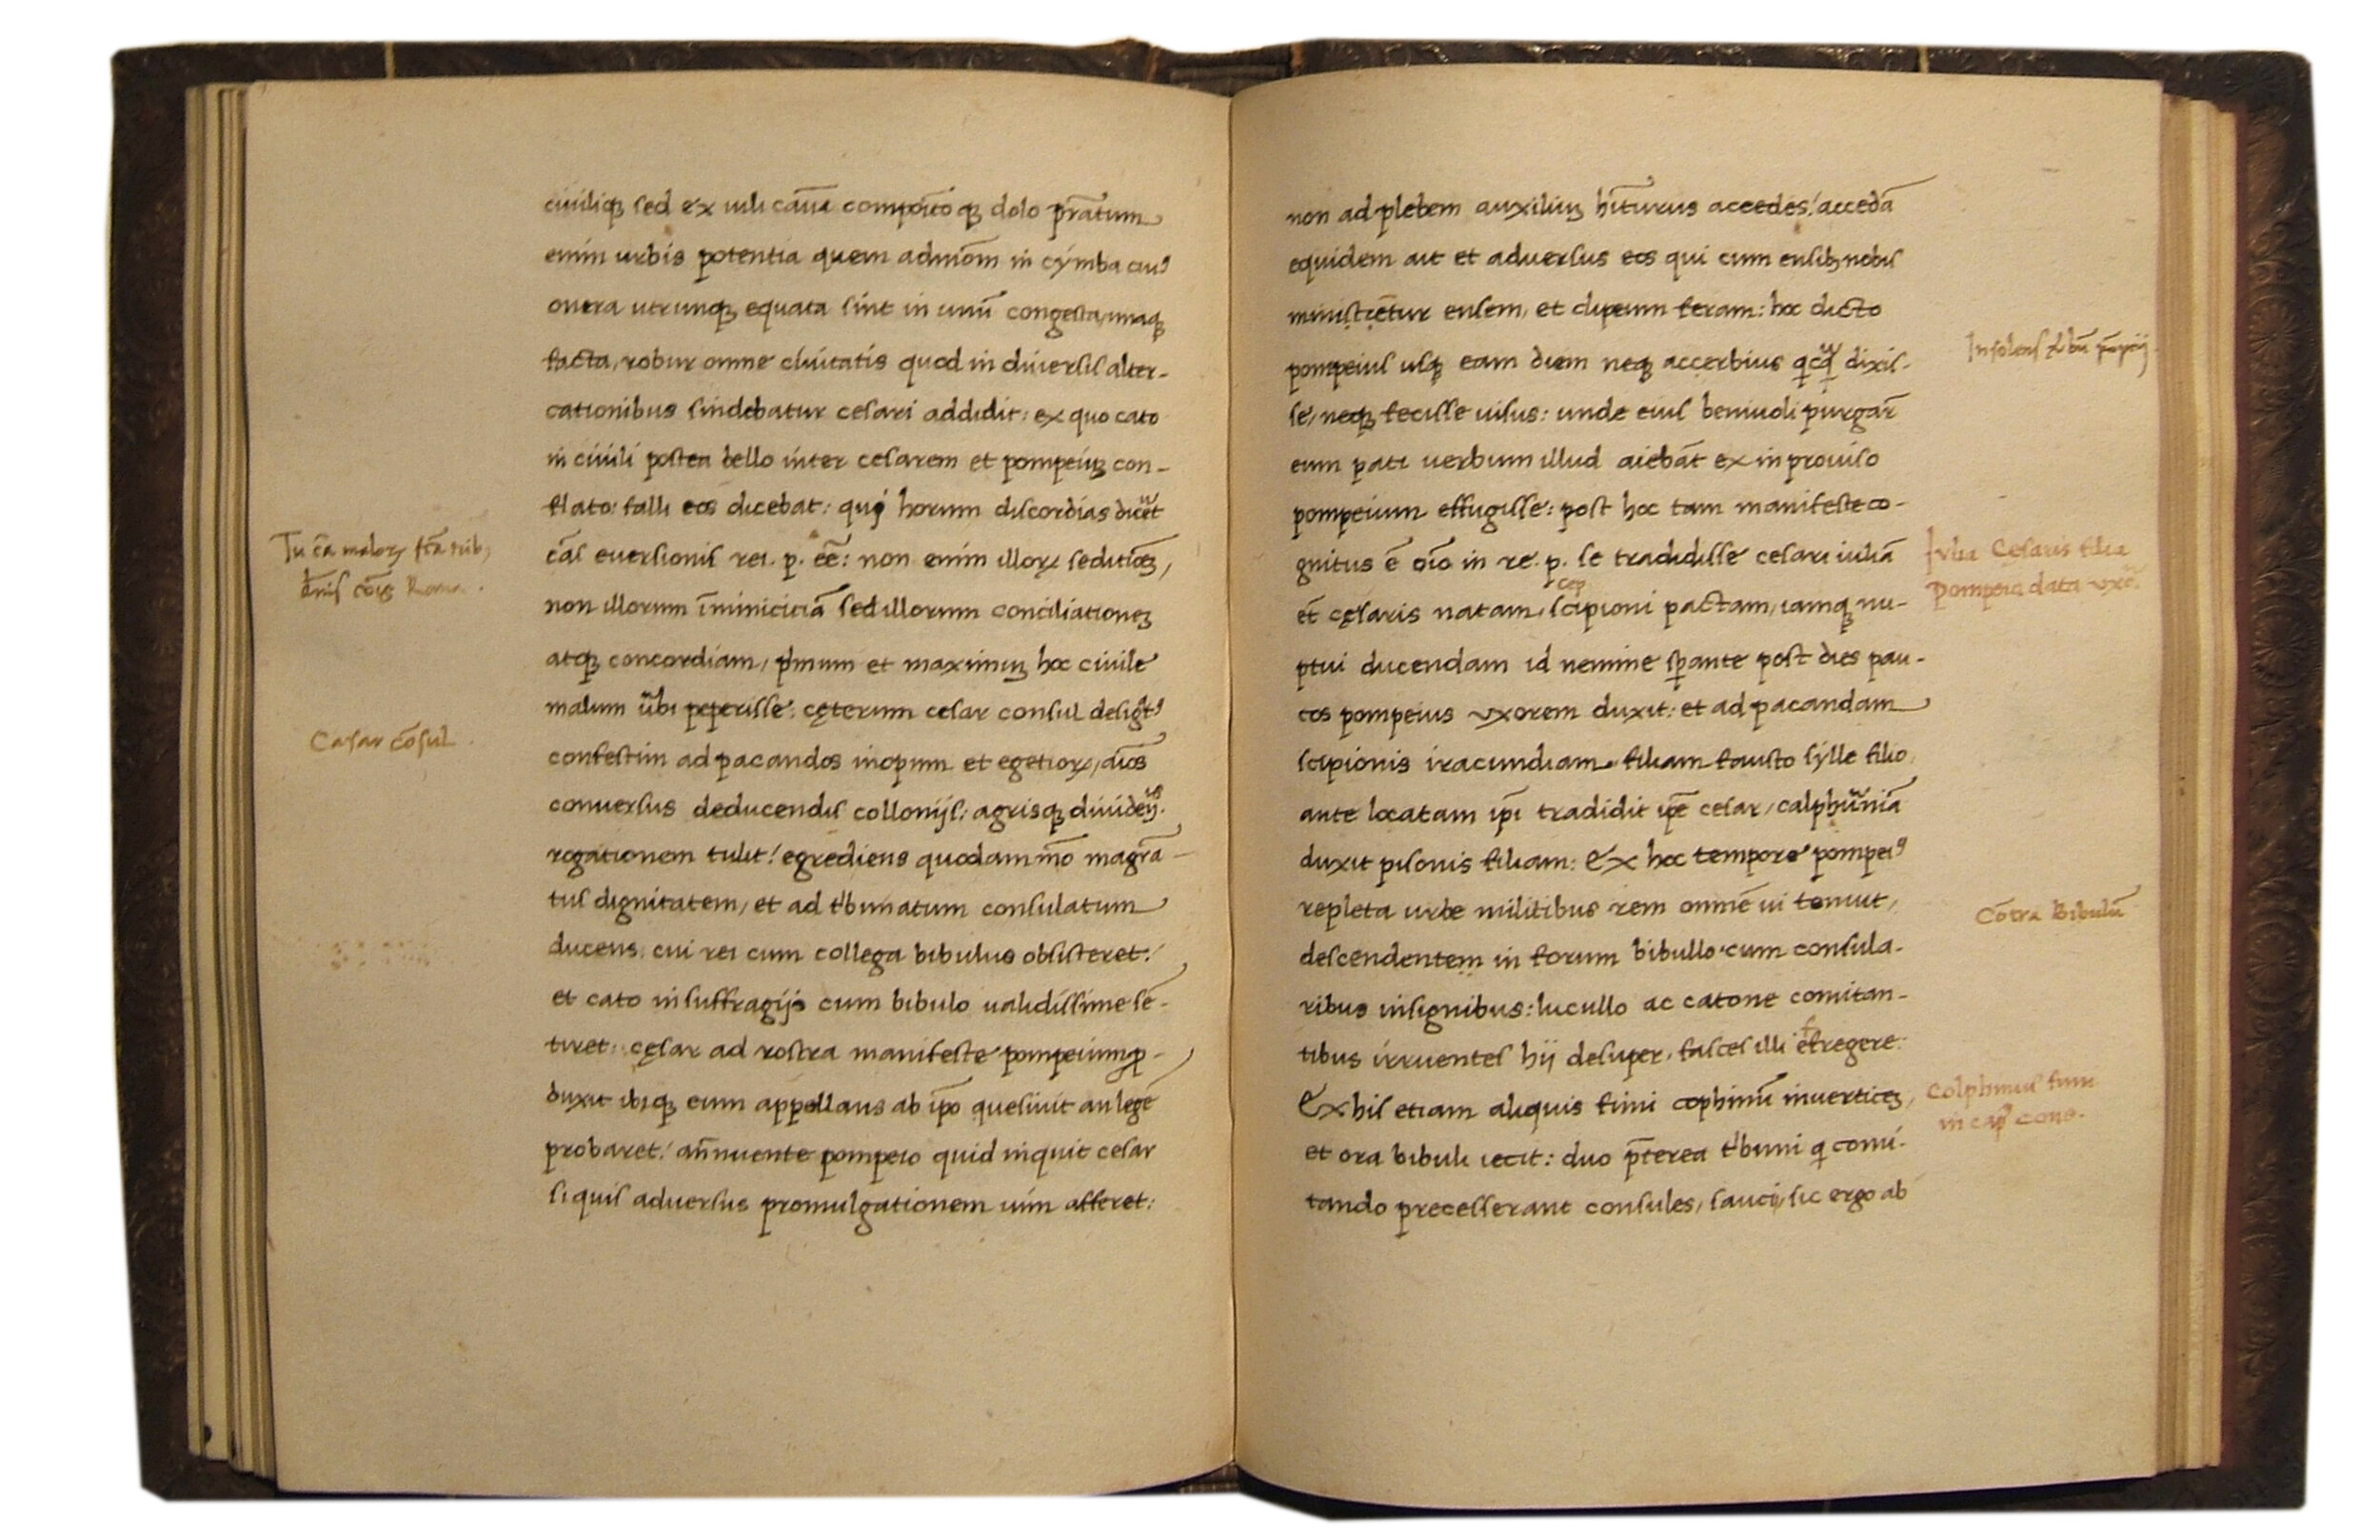 ciuiliq; sed ex uili cauā compoīto q; dolo pr̄atum
enim urbis potentia quem admōm in cymba cuiꝰ
onera utrunq; equata sint in unū congesta, unaq;
facta, robur omne ciuitatis quod in diuersis alter-
cationibus sindebatur cesari addidit: ex quo cato
in ciuili postea bello inter cesarem et pompeiuꝫ con-
flato: falli eos dicebat: qui horum discordias
cās euersionis rei. p. eē: non enim illoꝝ seditiōeꝫ,
non illorum īminicitiā sed illorum conciliationeꝫ
atq; concordiam, pͥmum et maximuꝫ hoc ciuile
malum ūbi peperisse: cęterum cesar consul
confestim ad pacandos inopum et egetioꝝ, aīos
conuersus deducendis collonijs: agrisq;
rogationem tulit! egrediens quodam mō magr̄a-
tus dignitatem, et ad tͥbunatum consulatum
ducens: cui rei cum collega bibulus obsisteret!
et cato in suffragijs cum bibulo ualidissime sē-
tiret: cęsar ad rostra manifeste pompeium ꝓ-
duxit ibiq; eum appellans ab ip̄o quesiuit an legē
probaret! an̄nuente pompeio quid inquit cesar
si quis aduersus promulgationem uim afferet:
Caesar cōsul.
non ad plebem auxiliuꝫ hīturus accedes! accedā
equidem ait et aduersus eos qui cum ensibꝫ nobis
ministrētur ensem, et clipeum feram: hoc dicto
pompeius usq; eam diem neq; accerbius dixis-
se, neq; fecisse uisus: unde eius beniuoli purgar̄
eum pati uerbum illud aiebāt ex inprouiso
pompeium effugisse: post hoc tam manifeste co-
gnitus ē oīo in re. p. se tradidisse cesari iuliā
et cęsaris natam, scipioni pactam, iamq; nu-
ptui ducendam id nemine sꝑante post dies pau-
cos pompeius vxorem duxit: et ad pacandam
scipionis iracundiam filiam fausto sylle filio
ante locatam ip̄i tradidit ip̄e cesar, calphurniā
duxit pisonis filiam: Ex hoc tempore pompeiꝰ
repleta urbe militibus rem omnē ui tenuit,
descendentem in forum bibullo cum consula-
ribus insignibus: lucullo ac catone comitan-
tibus irruentes hij desuper, fasces illi efregere:
Ex his etiam aliquis fimi cophinū in uerticeꝫ,
et ora bibuli iecit: duo p̄terea tͥbuni q comi-
tando precesserant consules, saucij, sic ergo ab
Iulia Cęsaris filia
Pompeio data vxor
Cōtra Bibulū